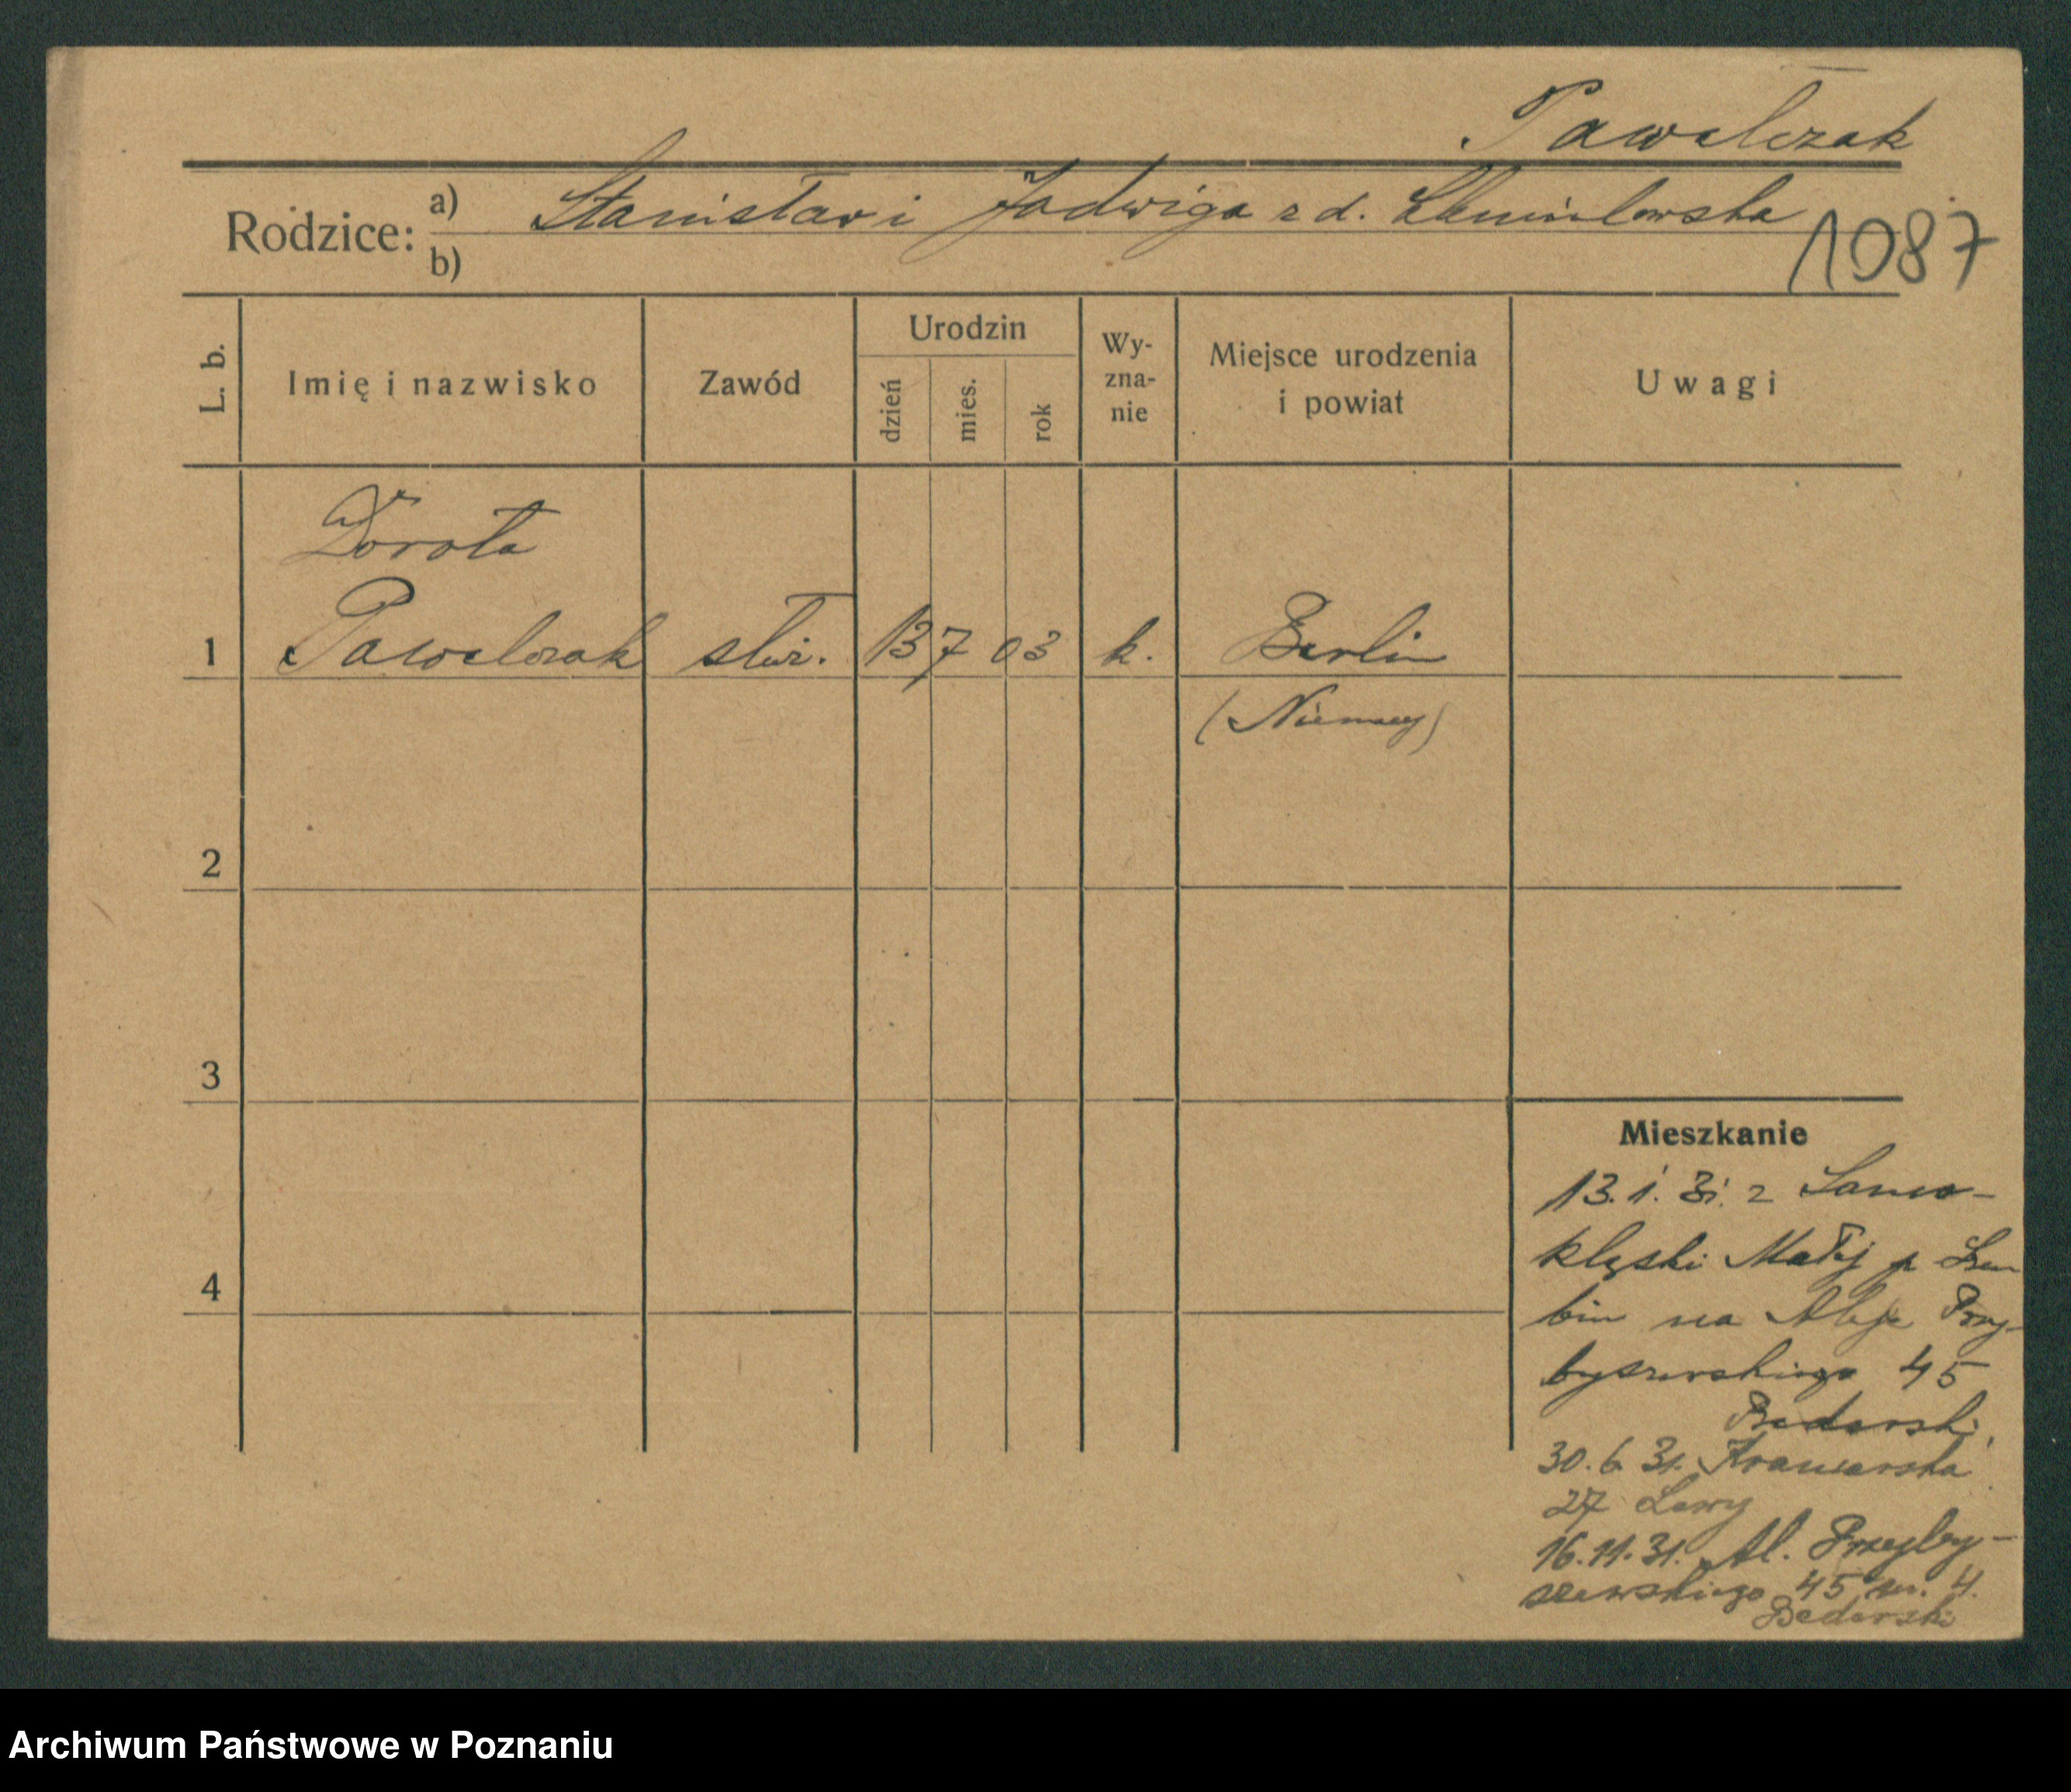 Pawełczak
Rodzice: a) Stanisław i Jadwiga z d.
b)
1087
L. b.
Imię i nazwisko
Zawód
Urodzin
dzień
mies.
rok
Wy-
zna-
nie
Miejsce urodzenia
i powiat
Uwagi
Dorota
1 Pawelczak służ. 13 7 03 k. Berlin
(Niemcy)
2
3
4
Mieszkanie
13.1.31. z Samo-
klęski Małej p
bin na Aleje Przy-
byszewskiego 45
Bederski
30.6 31. Kramarska
27 Lewy
16.11.31. Al. Przyby-
szewskiego 45 m. 4.
Bederski
Archiwum Państwowe w Poznaniu